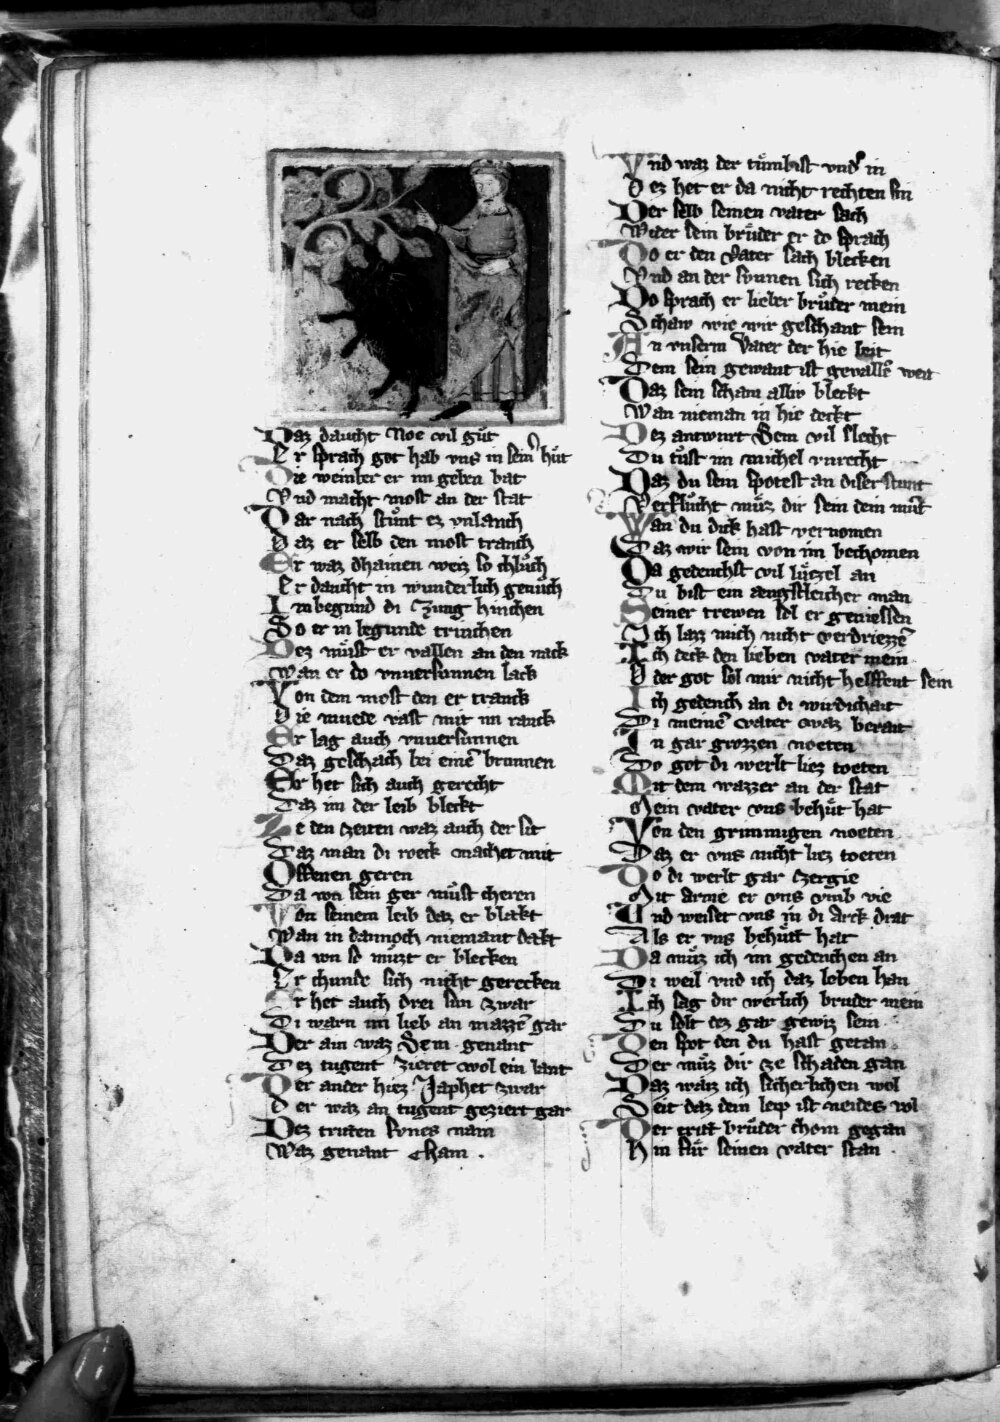 Daz daucht Noe vil gůt
Er sprach got hab vns in sein̄ hůt
Die weinber er im geben bat
Vnd macht most an der stat
Dar nach stůnt ez vnlanch
Daz er selb den most tranch
Er waz dhainen weis so chlůch
Er daucht in wunderlich genůch
Im begund di zung hinchen
Do er in begunde trinchen
Dez můst er vallen an den nack
Wan er do vnuersunnen lack
Von dem most den er tranck
Die muede vast mit im ranck
Er lag auch vnuersunnen
Daz geschach bei einē brunnen
Er het sich auch gerecht
Daz im der leib bleckt
Ze den zeiten waz auch der sit
Daz man di röck machet mit
Offenen geren
Da von sein ger můst cheren
Von seinem leib daz er blekt
Wan in dannoch niemant dekt
Da von so můzt er blecken
Er chunde sich nicht gerecken
Er het auch drei sun zwar
Di warn im lieb an mazzē gar
Der ain waz Sem genant
Dez tugent zieret wol ein lant
Der ander hiez Japhet zwar
Der waz an tugent geziert gar
Dez triten sunes nam
Waz genant Cham .
Vnd waz der tůmbist vnder in
Dez het er da nicht rechten sin
Der selb seinen vater sach
Wider sein brůder er do sprach
Do er den vater sach blecken
Vnd an der sunnen sich recken
Do sprach er lieber brůder mein
Schaw wie wir geschant sein
An vnserm vater der hie leit
Dem sein gewant ist gevallē weit
Daz sein scham allir bleckt
Wan nieman in hie deckt
Dez antwurt Sem vil slecht
Du tůst im michel vnrecht
Daz du sein spotest an diser stunt
Verflůcht můz dir sein dein můt
Wan du dick hast vernomen
Daz wir sein von im bechomen
Da gedenchst vil lůtzel an
Du bist ein aengstleicher man
Seiner trewen sol er geniessen
Ich lazz mich nicht verdriezzē
Ich deck den lieben vater mein
Oder got sol mir nicht helffent sein
Ich gedench an di wirdichait
Di meinē vater waz berait
In gar grozzen noeten
Do got di werlt liez toeten
Mit dem wazzer an der stat
Mein vater vns behůt hat
Von den grimmigen noeten
Daz er vns nicht liez toeten
Do di werlt gar zergie
Mit arme er vns vmb vie
Vnd weiset vns in di Arck drat
Als er vns behůtt hat
Da můz ich im gedenchen an
Di weil vnd ich daz leben han
Ich sag dir werlich bruder mein
Du solt dez gar gewiz sein
Den spot den du hast getan
Der můz dir ze schaden gan
Daz waiz ich sicherlichen wol
Seit daz dein leip ist neides vol
Der trit brůder chom gegan
Hin fůr seinen vater stan